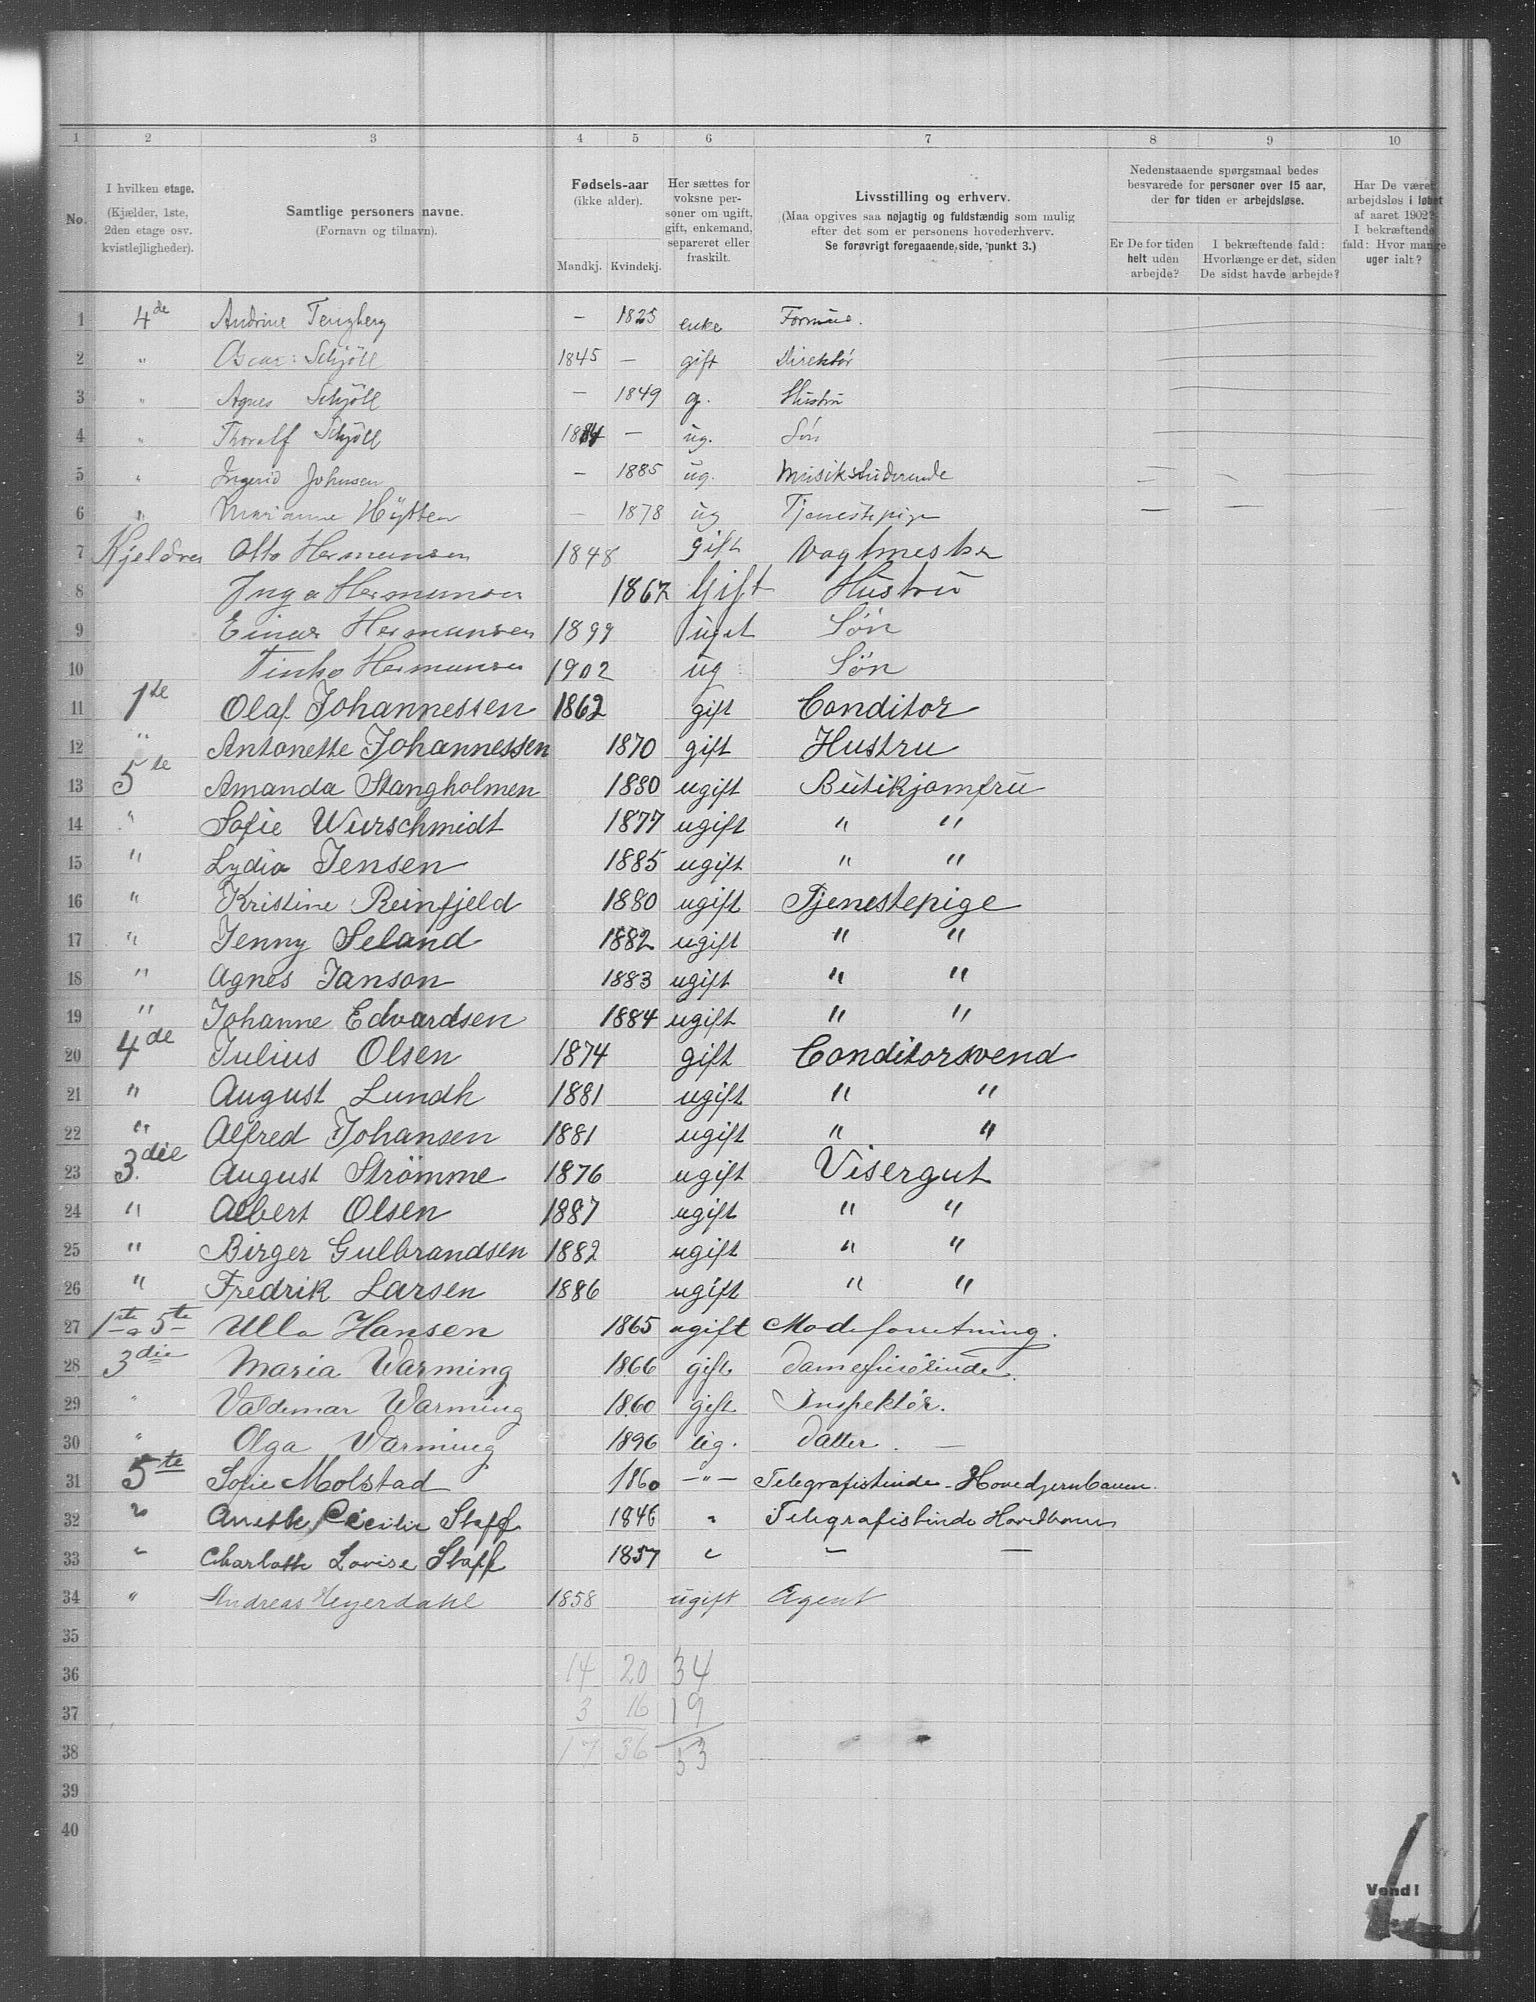 1 2 3 4 5 6 7 8 9 10
No.
I hvilken etage. (Kjælder, 1ste, 2den etage osv. kvistlejligheder).
Samtlige personers navne. (Fornavn og tilnavn).
Fødsels-aar (ikke alder). Mandkj. Kvindekj.
Her sættes for voksne personer om ugift, gift, enkemand, separeret eller fraskilt.
Livsstilling og erhverv. (Maa opgives saa nøjagtig og fuldstændig som mulig efter det som er personens hovederhverv. Se forøvrigt foregaaende side, punkt 3.)
Nedenstaaende spørgsmaal bedes besvarede for personer over 15 aar, der for tiden er arbejdsløse.
Er De for tiden helt uden arbejde?
I bekræftende fald: Hvorlænge er det, siden De sidst havde arbejde?
Har De været arbejdsløs i løbet af aaret 1902? I bekræftende fald: Hvor mange uger ialt?
1 4de Andrine Tengberg — 1825 enke Formue.
2 " Oscar Schjöll 1845 — gift Direktör
3 " Agnes Schjöll — 1849 g. Hustru
4 " Thoralf Schjöll 1884 — ug. Sön
5 " Ingerid Johnsen — 1885 ug. Musikstuderende —
6 " Marianne Hÿtten — 1878 ug Tjenestepige — — —
7 Kjelderen Otto Hermansen 1848 gift Vagtmester
8 Inga Hermansen 1867 Gift Hustru
9 Einar Hermansen 1899 ugift Sön
10 Hermansen 1902 ug Sön
11 1ste Olaf Johannessen 1862 gift Conditor
12 " Antonette Johannessen 1870 gift Hustru
13 5te Amanda Stangholmen 1880 ugift Butikjomfru
14 " Sofie Wurschmidt 1877 ugift " "
15 " Lydia Jensen 1885 ugift " "
16 " Kristine Reinfjeld 1880 ugift Tjenestepige
17 " Jenny Seland 1882 ugift " "
18 " Agnes Janson 1883 ugift " "
19 " Johanne Edvardsen 1884 ugift " "
20 4de Julius Olsen 1874 gift Conditorsvend
21 " August Lundh 1881 ugift " "
22 " Alfred Johansen 1881 ugift " "
23 3die August Strömme 1876 ugift Visergut
24 " Albert Olsen 1887 ugift " "
25 " Birger Gulbrandsen 1882 ugift " "
26 " Fredrik Larsen 1886 ugift " "
27 1ste a 5te Ulla Hansen 1865 ugift Modeforretning.
28 3die Maria Warming 1866 gift Damefrisörinde.
29 " Valdemar Warming 1860 gift Inspektör.
30 " Olga Warming 1896 ug. Datter. —
31 5te Sofie Molstad 1860 —"— Telegrafistinde - Hovedjernbanen.
32 " Anette Cecilie Staff 1846 " Telegrafistinde Hovedbanen
33 " Charlotte Lovise Staff 1857 " — —
34 " Andreas Heyerdahl 1858 ugift Agent
35
36 14 20 34
37 3 16 19
38 17 36 53
39
40
Vend!